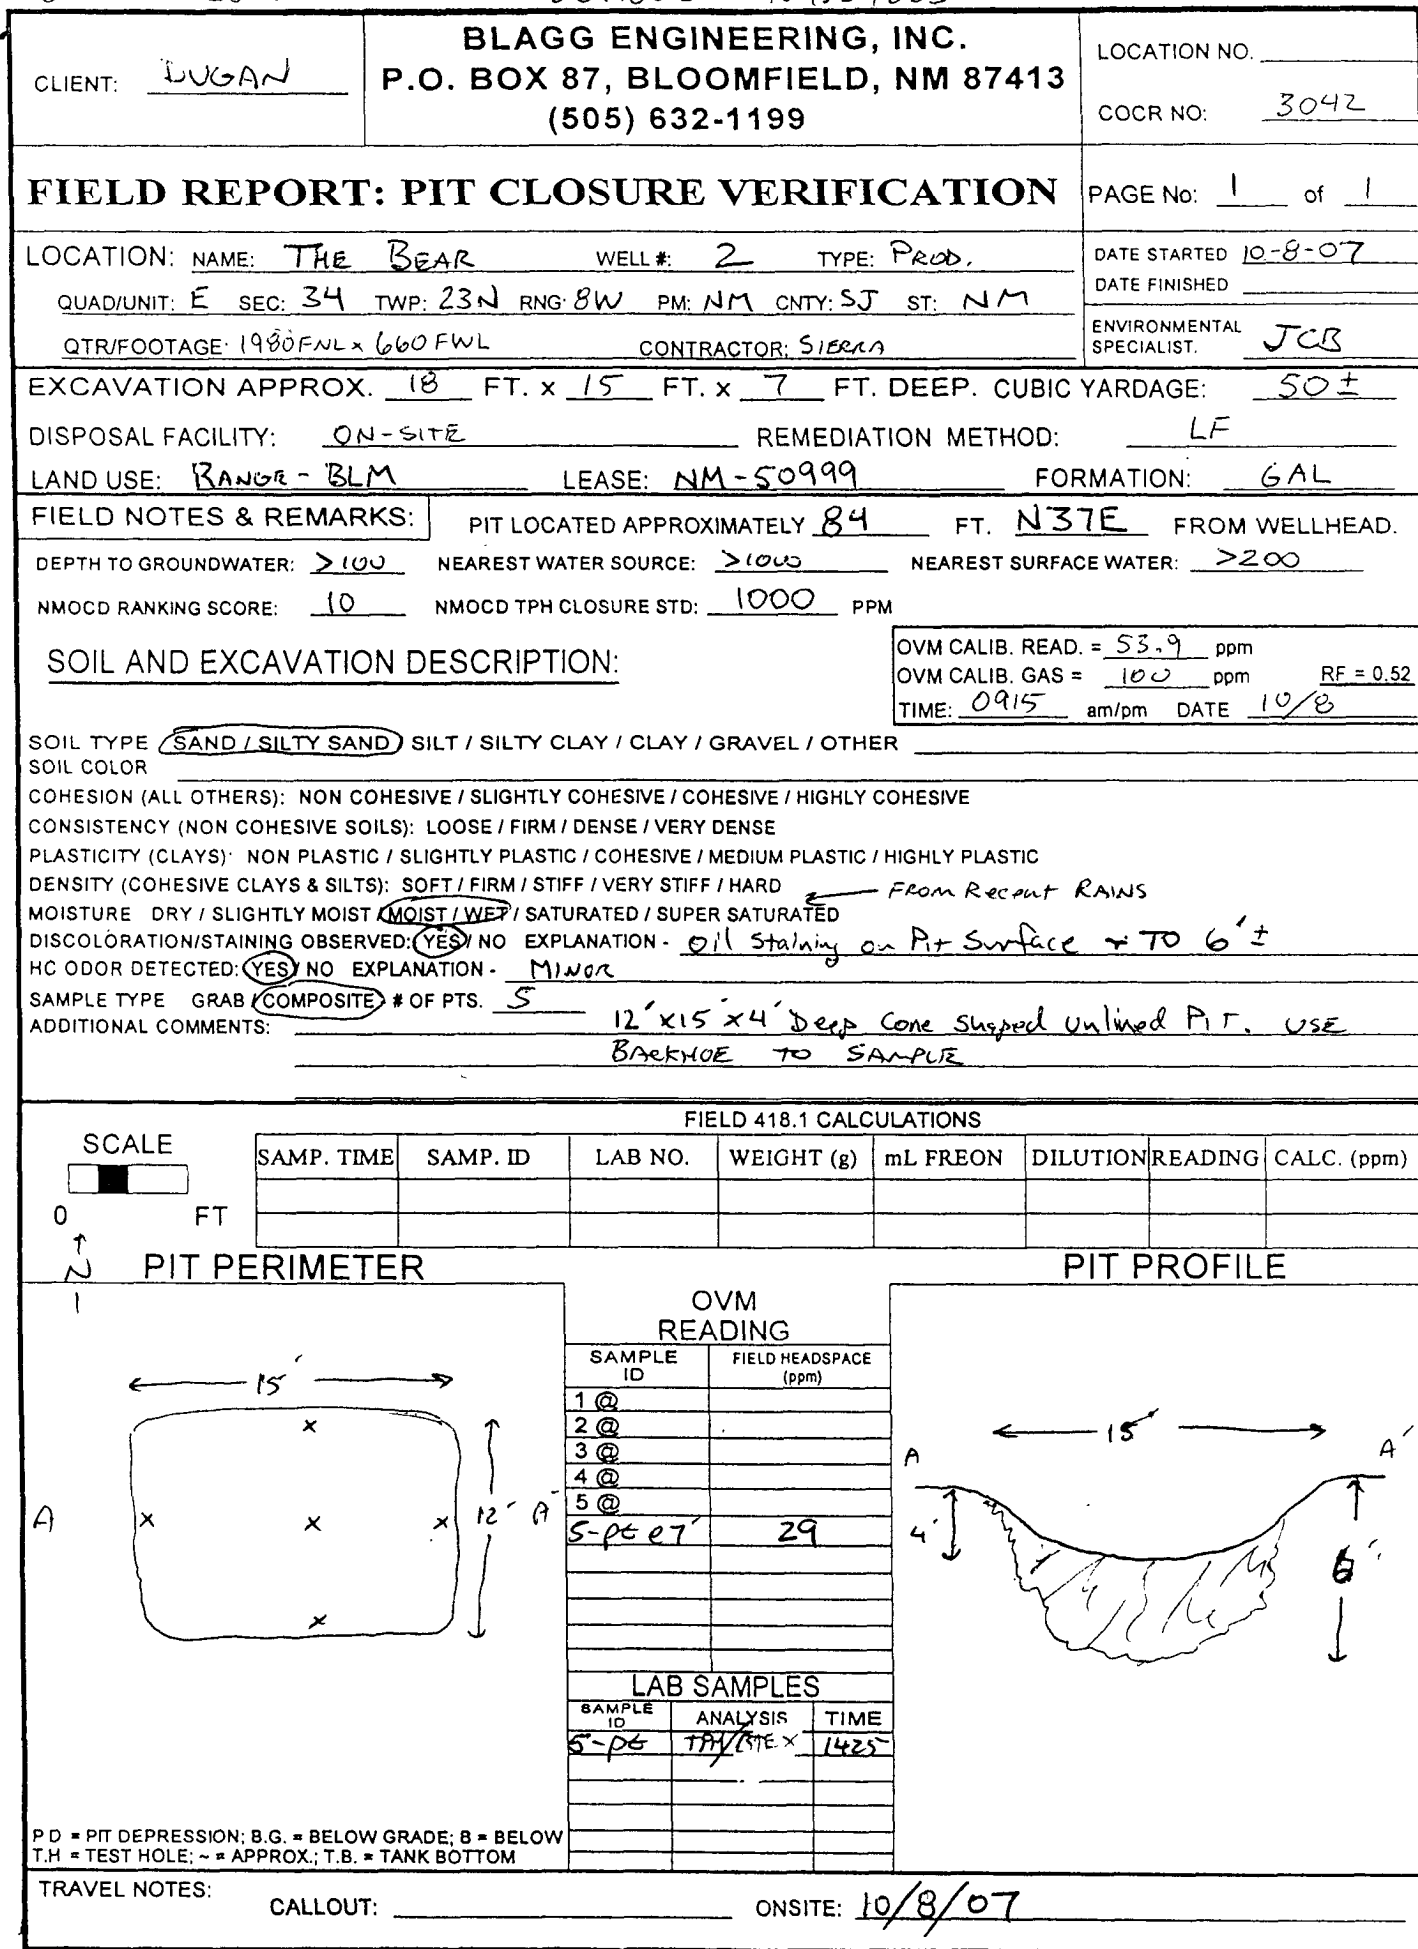 BLAGG ENGINEERING, INC.
P.O. BOX 87, BLOOMFIELD, NM 87413
(505) 632-1199
CLIENT: DUGAN
LOCATION NO.
COCR NO: 3042
FIELD REPORT: PIT CLOSURE VERIFICATION
PAGE No: 1 of 1
LOCATION: NAME: THE BEAR WELL #: 2 TYPE: PROD.
QUAD/UNIT: E SEC: 34 TWP: 23N RNG: 8W PM: NM CNTY: SJ ST: NM
QTR/FOOTAGE: 1980FNL x 660 FWL CONTRACTOR: SIERRA
DATE STARTED 10-8-07
DATE FINISHED
ENVIRONMENTAL
SPECIALIST. JCB
EXCAVATION APPROX. 18 FT. x 15 FT. x 7 FT. DEEP. CUBIC YARDAGE: 50 ±
DISPOSAL FACILITY: ON-SITE REMEDIATION METHOD: LF
LAND USE: RANGE - BLM LEASE: NM-50999 FORMATION: GAL
FIELD NOTES & REMARKS: PIT LOCATED APPROXIMATELY 84 FT. N37E FROM WELLHEAD.
DEPTH TO GROUNDWATER: >100 NEAREST WATER SOURCE: >1000 NEAREST SURFACE WATER: >200
NMOCD RANKING SCORE: 10 NMOCD TPH CLOSURE STD: 1000 PPM
SOIL AND EXCAVATION DESCRIPTION:
OVM CALIB. READ. = 53.9 ppm
OVM CALIB. GAS = 100 ppm RF = 0.52
TIME: 0915 am/pm DATE 10/8
SOIL TYPE SAND / SILTY SAND / SILT / SILTY CLAY / CLAY / GRAVEL / OTHER
SOIL COLOR
COHESION (ALL OTHERS): NON COHESIVE / SLIGHTLY COHESIVE / COHESIVE / HIGHLY COHESIVE
CONSISTENCY (NON COHESIVE SOILS): LOOSE / FIRM / DENSE / VERY DENSE
PLASTICITY (CLAYS): NON PLASTIC / SLIGHTLY PLASTIC / COHESIVE / MEDIUM PLASTIC / HIGHLY PLASTIC
DENSITY (COHESIVE CLAYS & SILTS): SOFT / FIRM / STIFF / VERY STIFF / HARD FROM Recent RAINS
MOISTURE DRY / SLIGHTLY MOIST / MOIST / WET / SATURATED / SUPER SATURATED
DISCOLORATION/STAINING OBSERVED: YES / NO EXPLANATION - Oil Staining on Pit Surface + TO 6' ±
HC ODOR DETECTED: YES / NO EXPLANATION - MINOR
SAMPLE TYPE GRAB / COMPOSITE # OF PTS. 5
ADDITIONAL COMMENTS: 12' x15' x4' Deep Cone Shaped Unlined Pit. USE
BACKHOE TO SAMPLE
FIELD 418.1 CALCULATIONS
SCALE
0 FT
SAMP. TIME SAMP. ID LAB NO. WEIGHT (g) mL FREON DILUTION READING CALC. (ppm)
N
PIT PERIMETER
PIT PROFILE
OVM
READING
SAMPLE ID FIELD HEADSPACE (ppm)
1 @
2 @
3 @
4 @
5 @
5-pt @ 7' 29
15'
12'
A A'
15'
A A'
4'
6'
LAB SAMPLES
SAMPLE ID ANALYSIS TIME
5-pt TPH/BTEX 1425
P D = PIT DEPRESSION; B.G. = BELOW GRADE; B = BELOW
T.H = TEST HOLE; ~ = APPROX.; T.B. = TANK BOTTOM
TRAVEL NOTES:
CALLOUT: ONSITE: 10/8/07